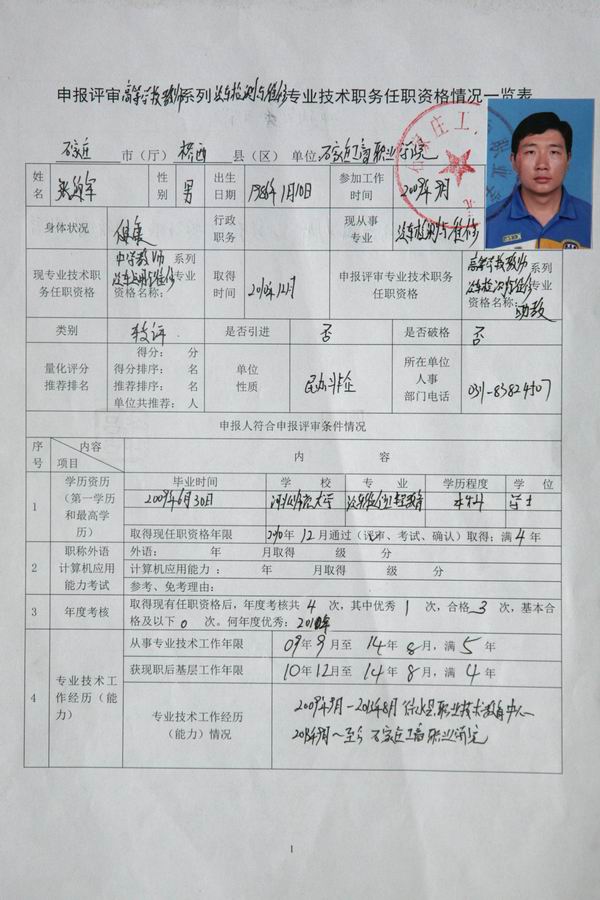 申报评审高等学校教师系列汽车检测与维修专业技术职务任职资格情况一览表
石家庄 市（厅） 桥西 县（区） 单位：石家庄工商职业学院
姓名 性别 男 出生日期 1986年1月10日 参加工作时间 2009年9月
身体状况 健康 行政职务 现从事专业 汽车检测与维修
现专业技术职务任职资格 中学教师系列 汽车运用与维修专业 资格名称： 取得时间 2010年12月 申报评审专业技术职务任职资格 高等学校教师系列 汽车检测与维修专业 资格名称： 助教
类别 转评 是否引进 否 是否破格 否
量化评分推荐排名 得分： 分 单位性质 民办非企 所在单位人事部门电话 0311-83824507
得分排序： 名
推荐排序： 名
单位共推荐： 人
申报人符合申报评审条件情况
序号 内容 项目 内 容
1 学历资历（第一学历和最高学历） 毕业时间 学 校 专 业 学历程度 学 位
2009年6月30日 河北师范大学 本科 学士
取得现任职资格年限 2010年12月通过（评审、考试、确认）取得；满4年
2 职称外语计算机应用能力考试 外语： 年 月取得 级 分
计算机应用能力： 年 月取得 级 分
参考、免考理由：
3 年度考核 取得现有任职资格后，年度考核共 4 次，其中优秀 1 次，合格 3 次，基本合
格及以下 0 次。何年度优秀：2010年
4 专业技术工作经历（能力） 从事专业技术工作年限 09年9月至 14年8月，满 5 年
获现职后基层工作年限 10年12月至 14年8月，满 4 年
专业技术工作经历（能力）情况 2009年9月-8月 职业技术教育中心
至今 石家庄工商职业学院
1